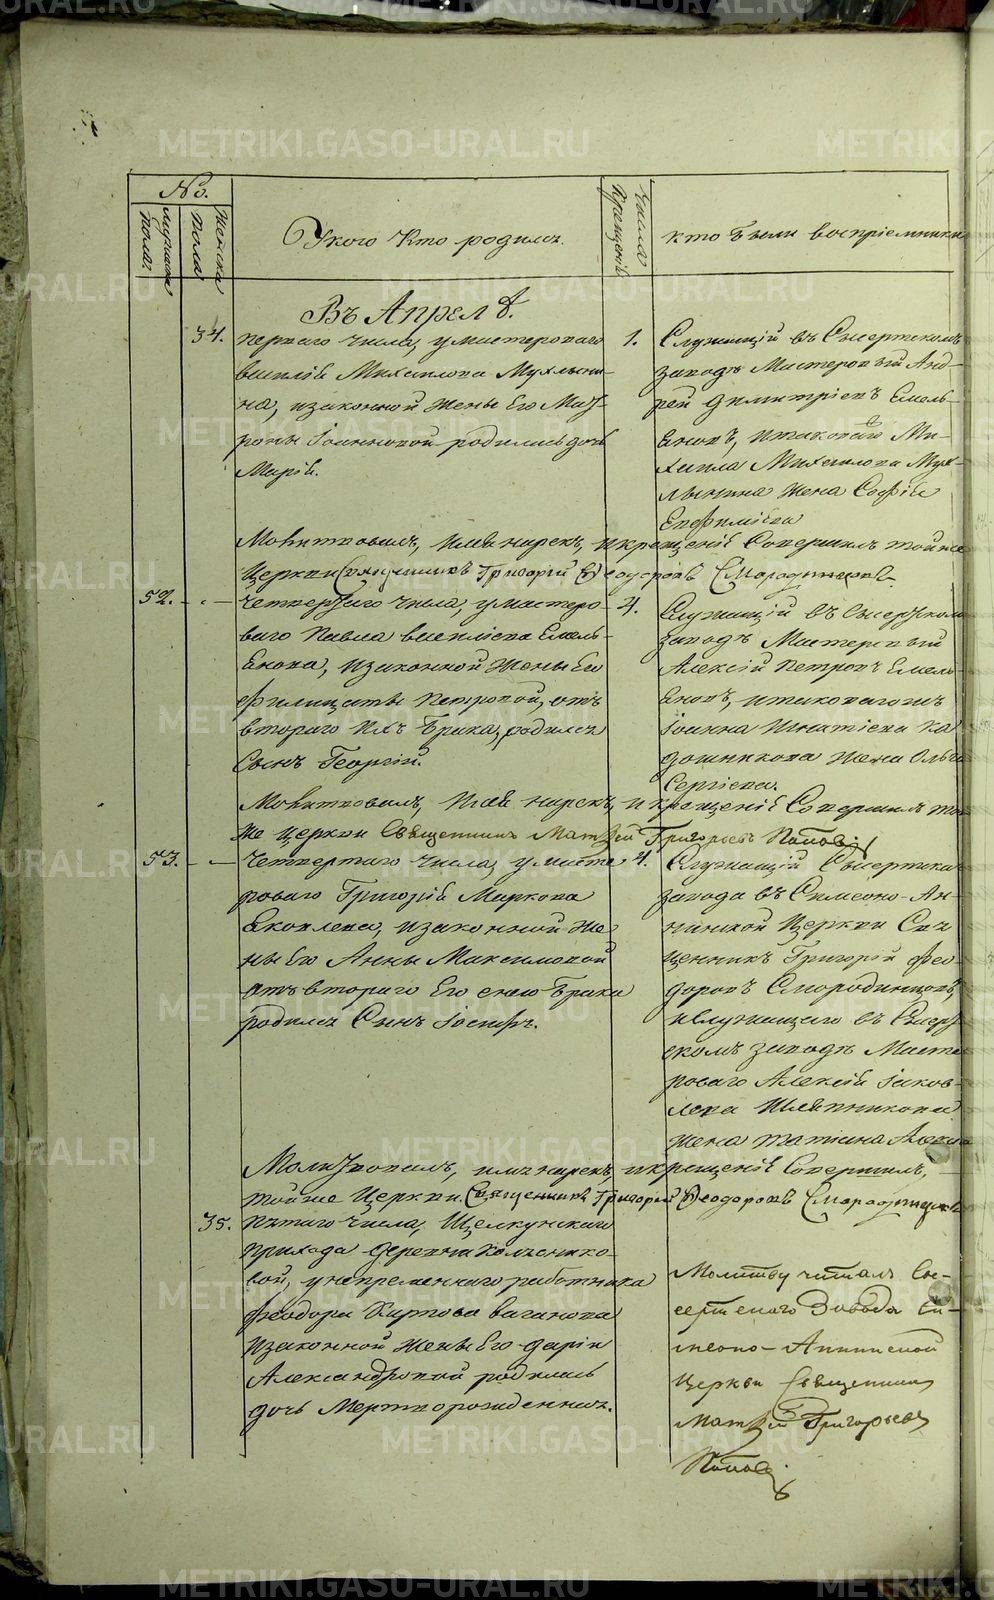 No.
Мужеска пола.
Женска пола
У кого кто родился.
Числа крещенiй
кто были воспрiемники
Въ Апрелѣ.
34.
перваго числа, умастероваго
Василiя Михаилова Мухлыни-
на, изаконной жены Его Мат-
роны Iоанновой родилась дочь
Марiя.
1.
Служащiй въ Сысертскомъ
заводѣ Мастеровый Анд-
рей Димитрiевъ Емель-
яновъ, итаковаго Ми-
хаила Михаилова Мух-
лынина жена Софiя
Евфимiева
Молитвовалъ, имя нарекъ, икрещенiе Совершилъ тойже
Церкви Священникъ Григорiй Ѳеодоровъ Смородинцовъ
52.
четвертаго числа, умастеро-
ваго Павла Василiева Емель-
янова, изаконной жены Его
Филицаты Петровой, отъ
втораго ихъ брака, родился
Сынъ Георгiй.
4.
Служащiй въ Сысертском
заводѣ Мастеровый
Алексiй Петровъ Емель-
яновъ, итаковагожъ
Iоанна Игнатiева Ка
дошникова жена Ольга
Сергiева.
Молитвовалъ, Имя нарекъ, и крещенiе Совершилъ той
же церкви Священникъ Матѳей Григорьевъ Поповъ
53.
Четвертаго числа, умасте
роваго Григорiя Маркова
Яковлева, изаконной же-
ны Его Анны Максимовой
отъ втораго Его сною брака
родился Сынъ Iосифъ.
4.
Служащiй Сысертска
завода въ Симеоно-Ан-
нинской Церкви Свя
щенникъ Григорiй Фео
доровъ Смородинцовъ,
ислужащаго въ Сысерт
скомъ заводѣ Масте
роваго Алексiя Iаков-
лева Шляпникова
жена Татiана
Молитвовалъ, имя нарекъ, икрещенiе Совершилъ,
тойже Церкви. Священникъ Григорiй Ѳеодоровъ Смородинцовъ
35.
пятаго числа, Щелкунскаго
прихода деревни Колясник-
вой, унепременнаго работника
Феодора Карпова Ваганова
изаконной жены Его Дарiи
Александровой родилась
дочь Мертворожденная.
Молитву читалъ Сы-
сертскаго Завода Си-
меоно-Аннинской
Церкви Священникъ
Матѳей Григорьевъ
Поповъ
METRIKI.GASO-URAL.RU